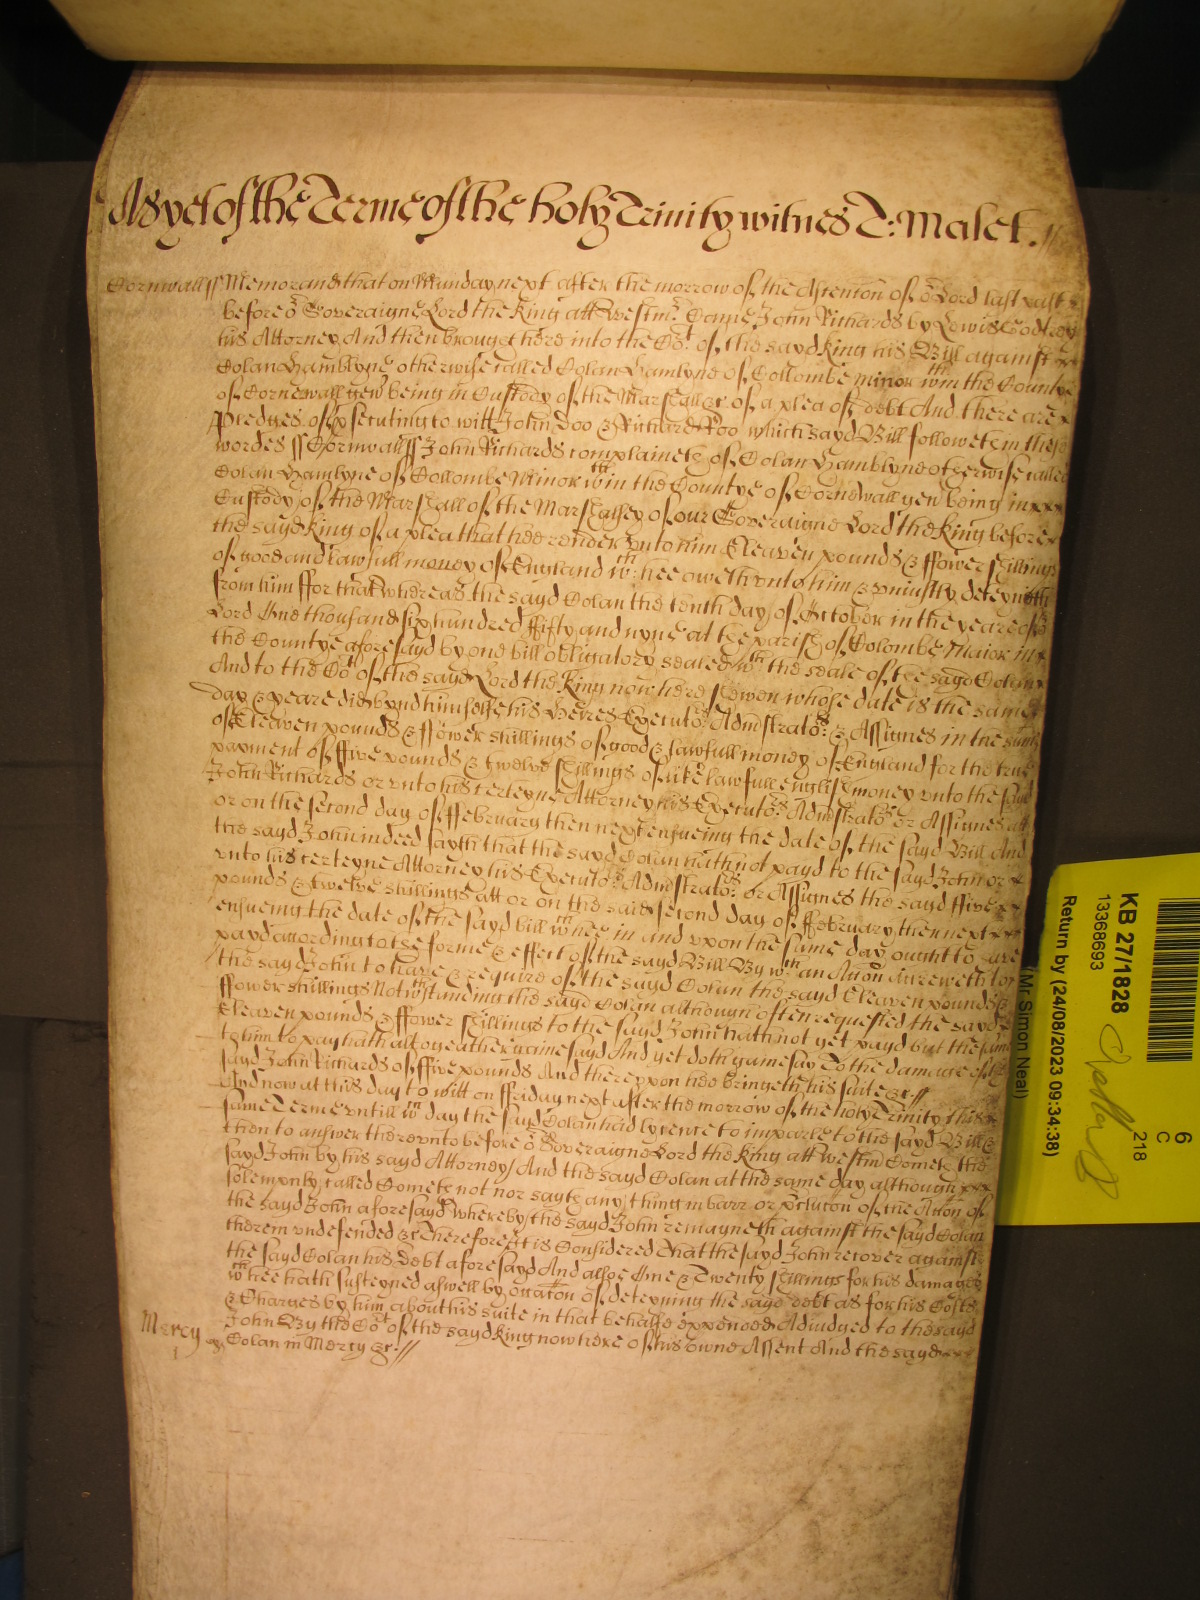 As yet of the Terme of the holy Trinity witnes T: Malet.
Cornwall ss Memorand that on Munday next after the morrow of the Ascention of or Lord last past
before or Soveraigne Lord the King att Westmr Came John Richards by Lewis Godfrey
his Attorney And then brought here into the Cot of the sayd King his Bill against
Colan Hamblyne otherwise called Colan Hamlyne of Collombe Minor wthin the Countye
of Cornewall gen being in Custody of the Marshall &c of a plea of debt And there are
Pledges of psecuting to witt John Doo & Richard Roo which sayd Bill followeth in these
wordes ss Cornwall ss John Richards complaineth of Colan Hamblyne otherwise called
Colan Hamlyne of Collombe Minor wthin the Countye of Cornewall gen being in
Custody of the Marshall of the Marshalsey of our Soveraigne Lord the King before
the sayd King of a plea that hee render unto him Eleaven pounds & ffower shillings
of good and lawfull money of England wch hee oweth unto him & uniustly deteyneth
from him ffor that whereas the sayd Colan the tenth day of October in the yeare of or
Lord One thousand six hundred ffifty and nyne at the parish of Colombe Maior in
the Countye aforesayd by one bill obligatory sealed wth the seale of the sayd Colan
And to the Cot of the sayd Lord the King now here shewen whose date is the same
day & yeare did bynd himselfe his Heires Executors Adminstrators & Assignes in the sume
of Eleaven pounds & ffower shillings of good & lawfull money of England for the true
payment of ffive pounds & twelve shillings of like lawfull english money unto the sayd
John Richards or unto his certeyne Attorney his Executors Adminstrators or Assignes att
or on the second day of ffebruary then next ensueing the date of the sayd Bill And
the sayd John indeed sayth that the sayd Colan hath not payd to the sayd John or
unto his certeyne Attorney his Executors Adminstrators or Assignes the sayd ffive
pounds & twelve shillings att or on the said second day of ffebruary then next
ensueing the date of the sayd bill wch hee in and upon the same day ought to have
payd according to the forme & effect of the sayd Bill By wch an Action accreweth to
the sayd John to have & require of the sayd Colan the sayd Eleaven pounds &
ffower shillings Notwthstanding the sayd Colan although often requested the sayd
Eleaven pounds & ffower shillings to the sayd John hath not yet payd but the same
to him to pay hath altogeather gainesayd And yet doth gainesay To the damage of the
sayd John Richards of ffive pounds And thereupon hee bringeth his suite &c //
And now at this day to witt on ffriday next after the morrow of the holy Trinity this
same Terme untill wch day the sayd Colan had lycence to imparle to the sayd Bill &
then to answer thereunto before or Soveraigne Lord the King att Westm Cometh the
sayd John by his sayd Attorney And the sayd Colan at the same day although
solempnly called Cometh not nor sayth any thing in barr or pclution of the Action of
the sayd John aforesayd whereby the sayd John remayneth against the sayd Colan
therein undefended &c Therefore it is Considered That the sayd John recover against
the sayd Colan his Debt aforesayd And alsoe One & Twenty shillings for his damages
wch hee hath susteyned aswell by occation of deteyning the sayd debt as for his Costs
& Charges by him about his suite in that behalfe expended Adiudged to the sayd
John By the Cot of the sayd King now here of his owne Assent And the sayd
Mercy Colan in Mercy &c //
6
C
218
KB 27/1828
13368693
Return by (24/08/2023 09:34:38)
(Mr Simon Neal)